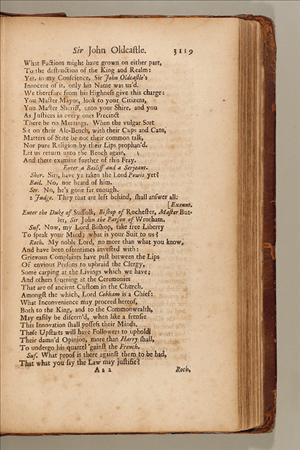 Sir John Oldcastle. 3119
What Factions might have grown on either part,
To the destruction of the King and Realm:
Yet, in my Conscience, Sir John Oldcastle's
Innocent of it, only his Name was us'd.
We therefore from his Highness give this charge:
You Master Mayor, look to your Citizens,
You Master Sheriff, unto your Shire, and you
As Justices in every ones Precinct
There be no Meetings. When the vulgar Sort
Sit on their Ale-Bench, with their Cups and Cans,
Matters of State be not their common talk,
Nor pure Religion by their Lips prophan'd.
Let us return unto the Bench again,
And there examine further of this Fray.
Enter a Bailiff and a Serjeant.
Sher. Sirs, have ye taken the Lord Powis yet?
Bail. No, nor heard of him.
Ser. No, he's gone far enough.
2 Judge. They that are left behind, shall answer all.
[Exeunt.
Enter the Duke of Suffolk, Bishop of Rochester, Master But-
ler, Sir John the Parson of Wrotham.
Suf. Now, my Lord Bishop, take free Liberty
To speak your Mind; what is your Suit to us?
Roch. My noble Lord, no more than what you know,
And have been oftentimes invested with:
Grievous Complaints have past between the Lips
Of envious Persons to upbraid the Clergy,
Some carping at the Livings which we have;
And others spurning at the Ceremonies
That are of ancient Custom in the Church.
Amongst the which, Lord Cobham is a Chief:
What Inconvenience may proceed hereof,
Both to the King, and to the Commonwealth,
May easily be discern'd, when like a frensie
This Innovation shall possess their Minds.
These Upstarts will have Followers to uphold
Their damn'd Opinion, more than Harry shall,
To undergo his quarrel 'gainst the French.
Suf. What proof is there against them to be had,
That what you say the Law may justifie?
A a 2 Roch.